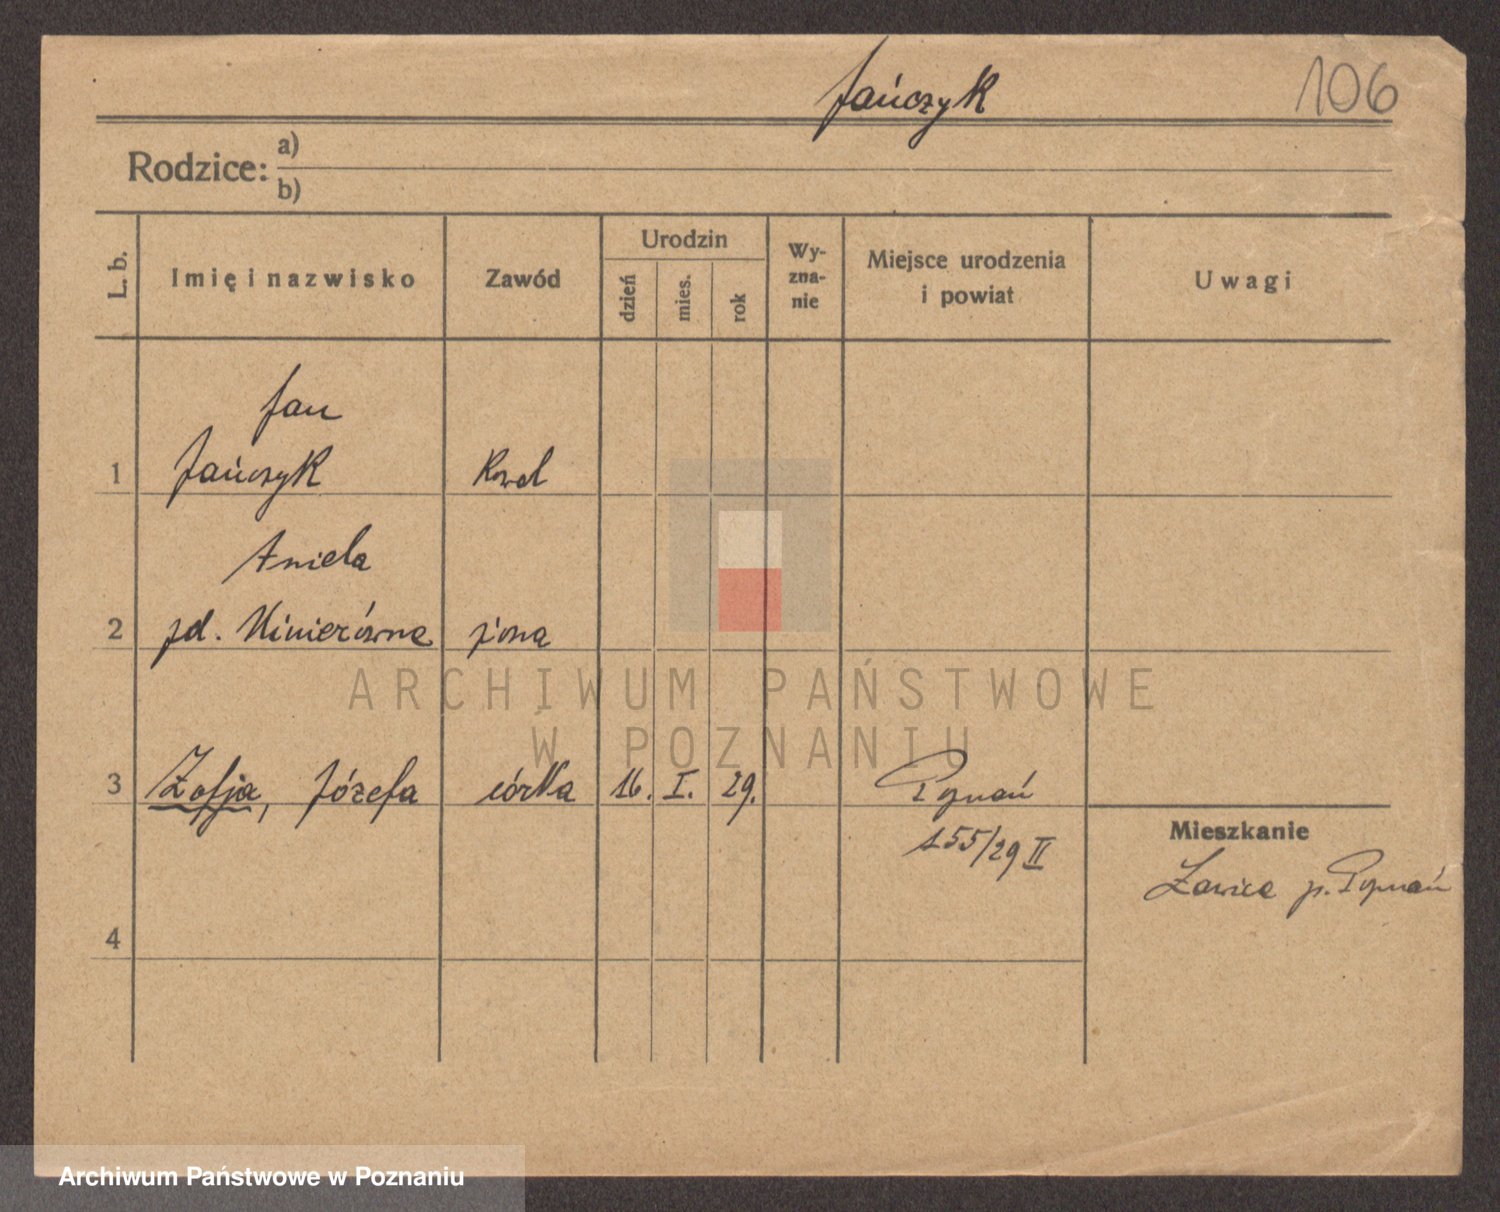 Jańczyk 106
Rodzice: a)
b)
L. b. Imię i nazwisko Zawód Urodzin dzień mies. rok Wy-zna-nie Miejsce urodzenia i powiat Uwagi
Jan
1 Jańczyk Kowal
Aniela
2 zd. żona
3 Zofja, Józefa córka 16. I. 29. Poznań
155/29 II
Mieszkanie
Ławica p. Poznań
4
ARCHIWUM PAŃSTWOWE
W POZNANIU
Archiwum Państwowe w Poznaniu